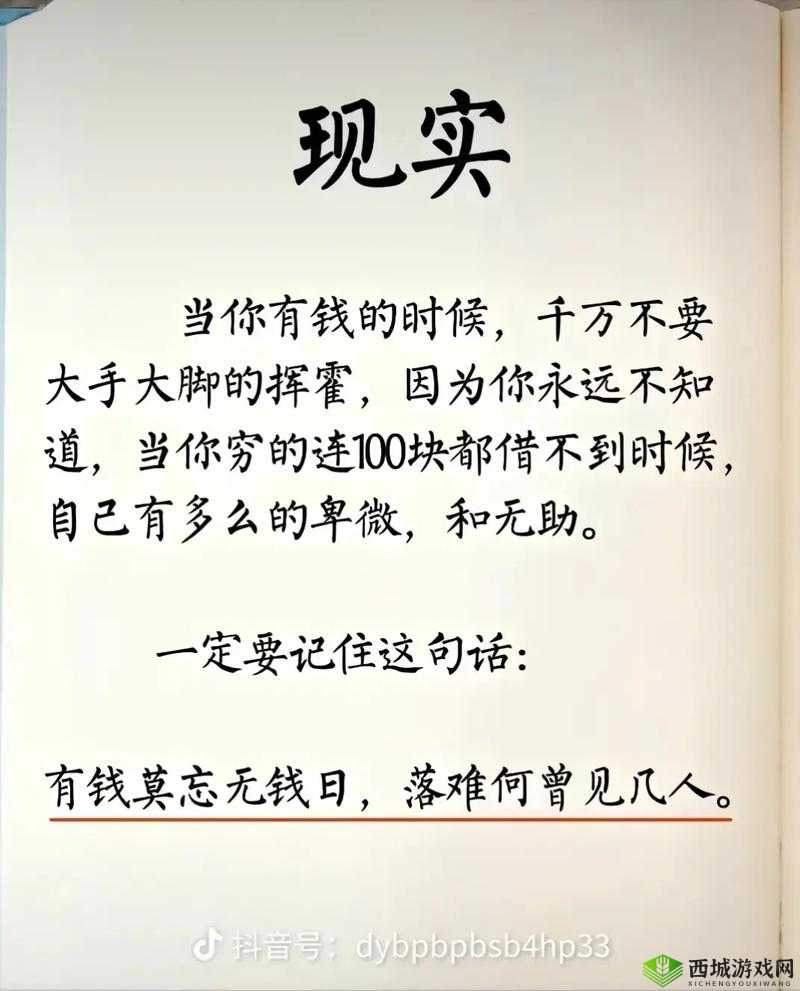 现实
当你有钱的时候，千万不要
大手大脚的挥霍，因为你永远不知
道，当你穷的连100块都借不到时候，
自己有多么的卑微，和无助。
一定要记住这句话：
有钱莫忘无钱日，落难何曾见几人。
抖音号：dybpbpbsb4hp33
西城游戏网
XICHENGYOUXIWANG